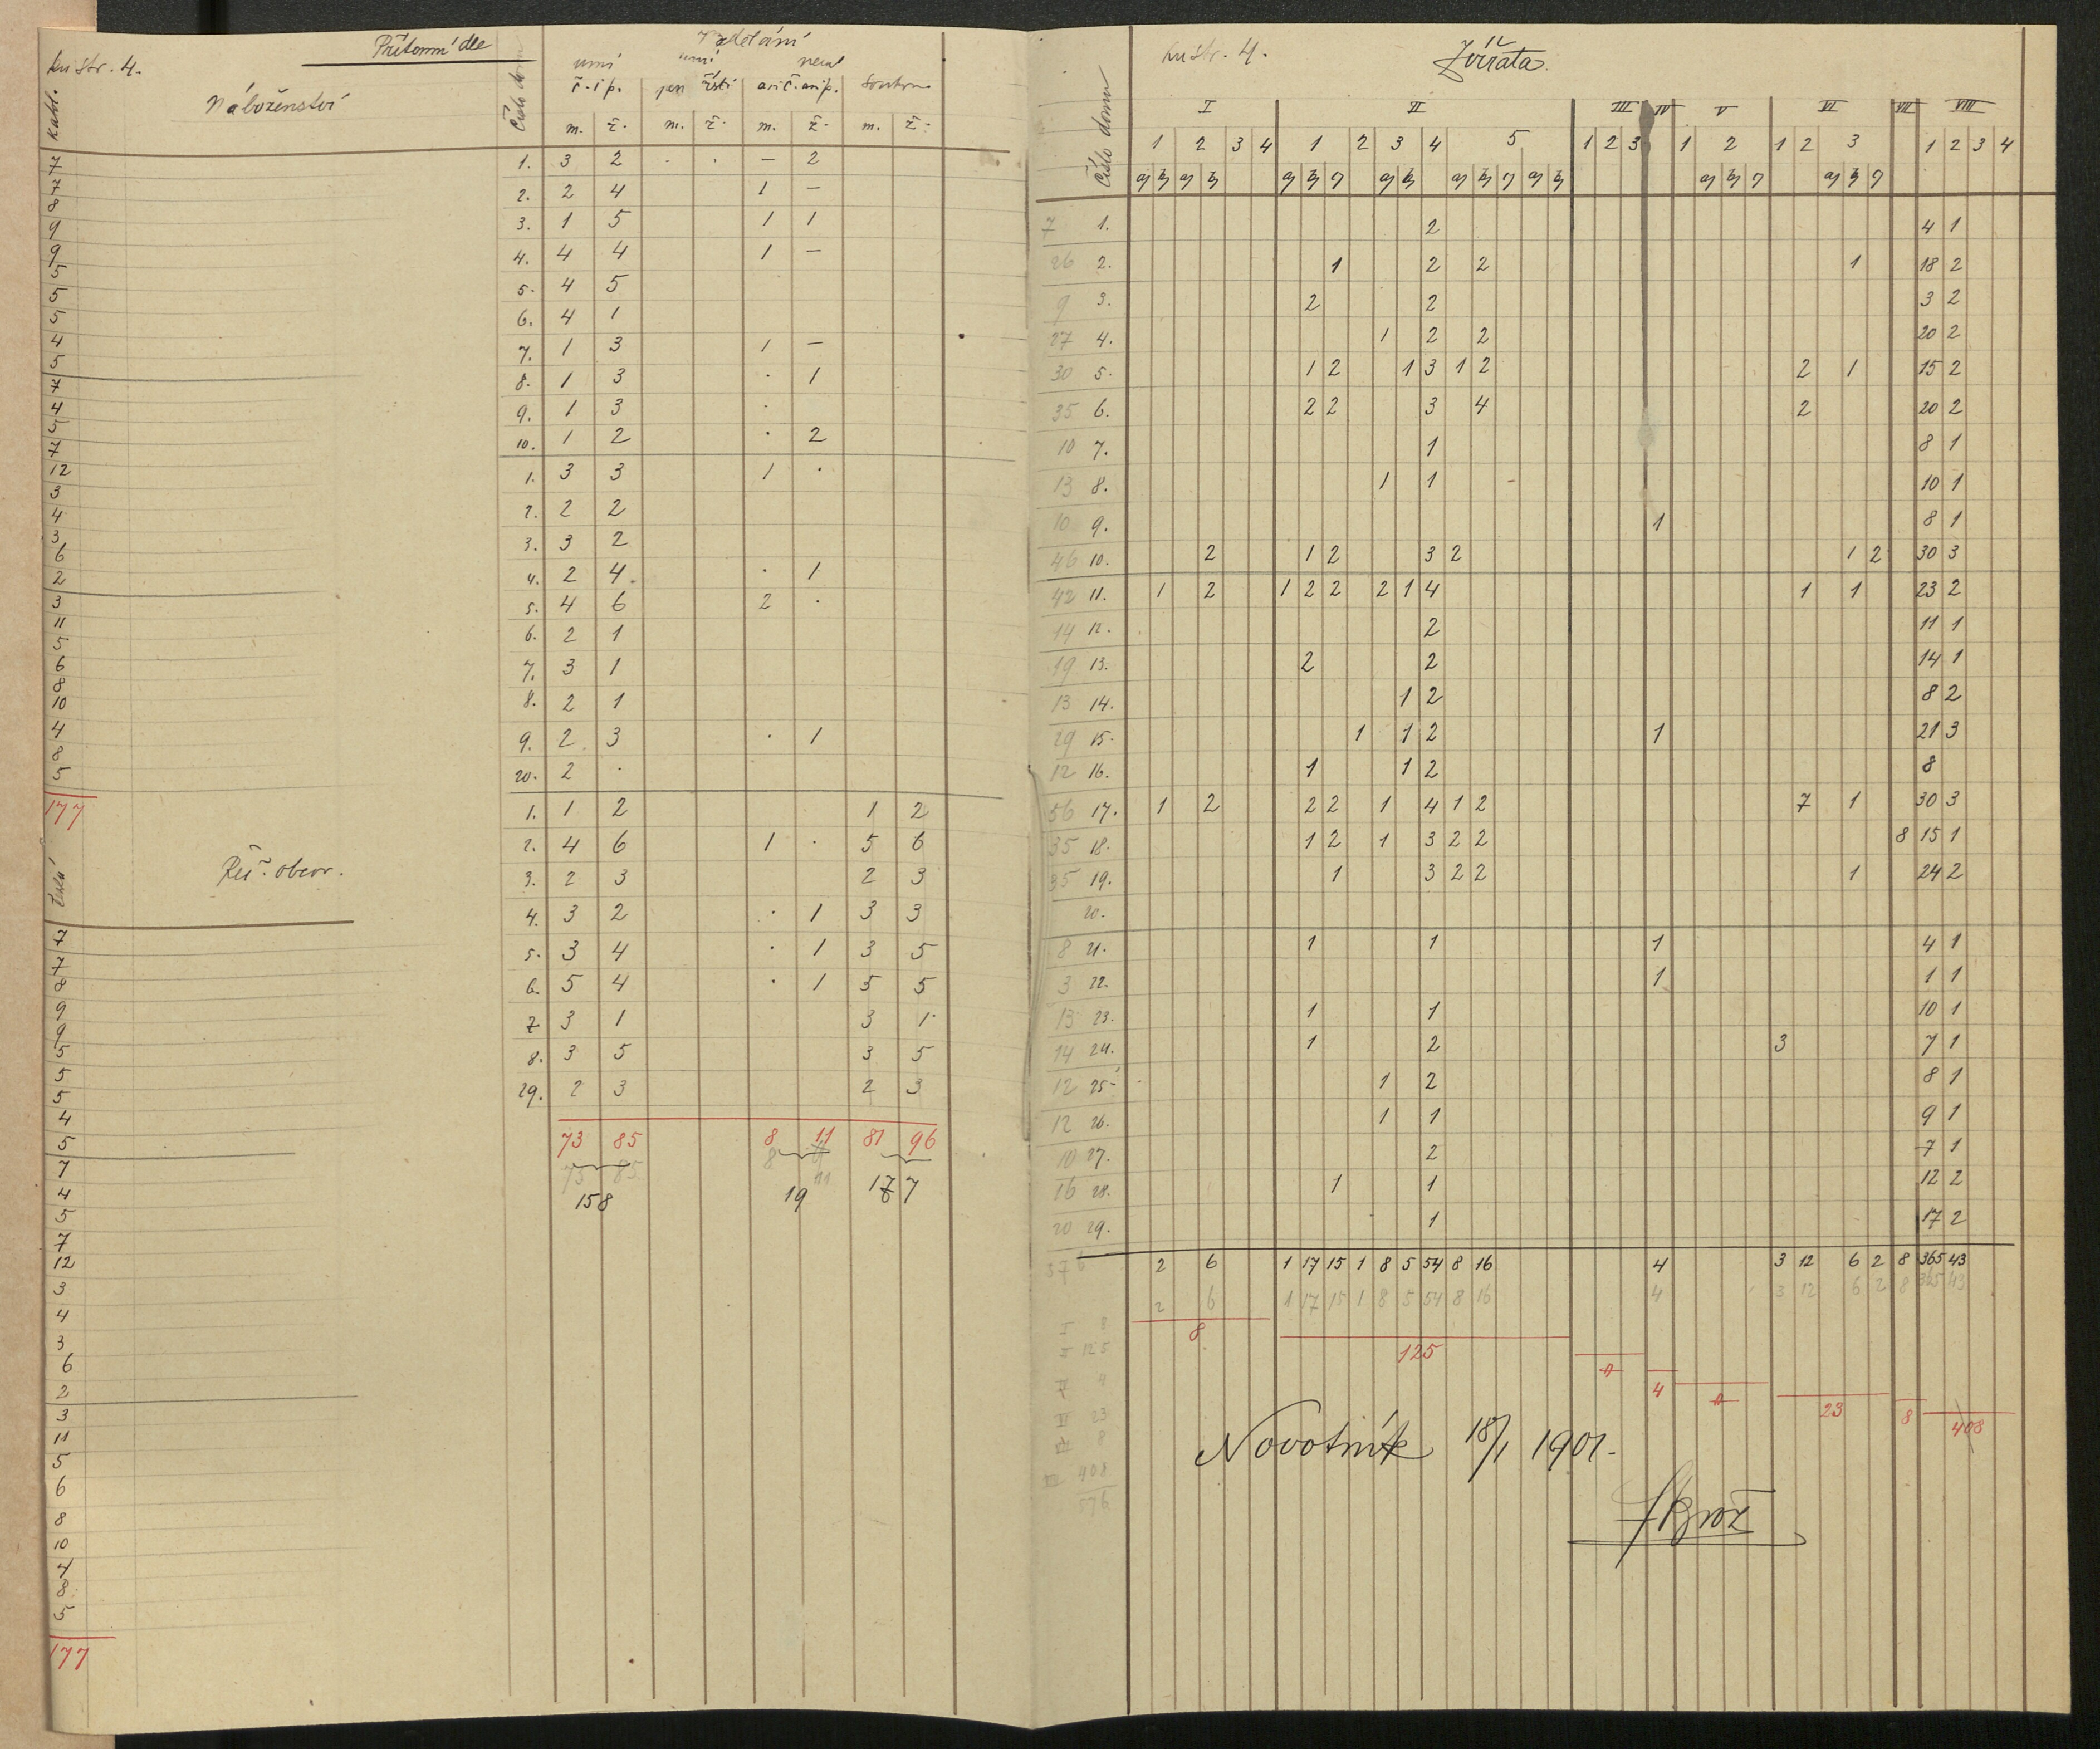 Přítomní dle
Ku str. 4.
Náboženství
Katol.
7
7
8
9
9
5
5
5
4
5
7
4
5
7
12
3
4
3
6
2
3
11
5
6
8
10
4
8
5
177
Řeč obcov.
česká
7
7
8
9
9
5
5
5
4
5
7
4
5
7
12
3
4
3
6
2
3
11
5
6
8
10
4
8
5
177
Číslo domu
Vzdělání
umí umí neumí
č. i p. jen čísti ani č. ani p. Souhrn
m. ž. m. ž. m. ž. m. ž.
1. 3 2 . . — 2
2. 2 4 1 —
3. 1 5 1 1
4. 4 4 1 —
5. 4 5
6. 4 1
7. 1 3 1 —
8. 1 3 . 1
9. 1 3 .
10. 1 2 . 2
1. 3 3 1 .
2. 2 2
3. 3 2
4. 2 4 . 1
5. 4 6 2 .
6. 2 1
7. 3 1
8. 2 1
9. 2 3 . 1
20. 2 .
1. 1 2 1 2
2. 4 6 1 . 5 6
3. 2 3 2 3
4. 3 2 . 1 3 3
5. 3 4 . 1 3 5
6. 5 4 . 1 5 5
7 3 1 3 1
8. 3 5 3 5
29. 2 3 2 3
73 85 8 11 81 96
73 85 8 11
158 19 177
Ku str. 4.
Zvířata
Číslo domu
I II III IV V VI VII VIII
1 2 3 4 1 2 3 4 5 1 2 3 1 2 1 2 3 1 2 3 4
7 1. 2 4 1
26 2. 1 2 2 1 18 2
9 3. 2 2 3 2
27 4. 1 2 2 20 2
30 5. 1 2 1 3 1 2 2 1 15 2
35 6. 2 2 3 4 2 20 2
10 7. 1 8 1
13 8. 1 1 - 10 1
10 9. 1 8 1
46 10. 2 1 2 3 2 1 2 30 3
42 11. 1 2 1 2 2 2 1 4 1 1 23 2
14 12. 2 11 1
19 13. 2 2 14 1
13 14. 1 2 8 2
29 15. 1 1 2 1 21 3
12 16. 1 1 2 8
56 17. 1 2 2 2 1 4 1 2 7 1 30 3
35 18. 1 2 1 3 2 2 8 15 1
35 19. 1 3 2 2 1 24 2
20.
8 21. 1 1 1 4 1
3 22. 1 1 1
13 23. 1 1 10 1
14 24. 1 2 3 7 1
12 25 1 2 8 1
12 26. 1 1 9 1
10 27. 2 7 1
16 28. 1 1 12 2
20 29. 1 17 2
576 2 6 1 17 15 1 8 5 54 8 16 4 3 12 6 2 8 365 43
2 6 1 17 15 1 8 5 54 8 16 4 3 12 6 2 8 365 43
8 125 4 23 8 408
I 8
II 125
IV 4
VI 23
VII 8
VIII 408
576
Novotník 18/1 1901.
J Brož